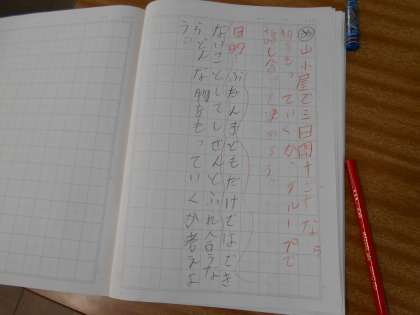 め 山小屋で三日間すごすなら
何をもっていくか、グループで
話し合って決めよう。
目的 ふだん子どもたけではでき
ないこととしてしぜんとふれ合うな
らどんな物をもっていくか考えよ
う。